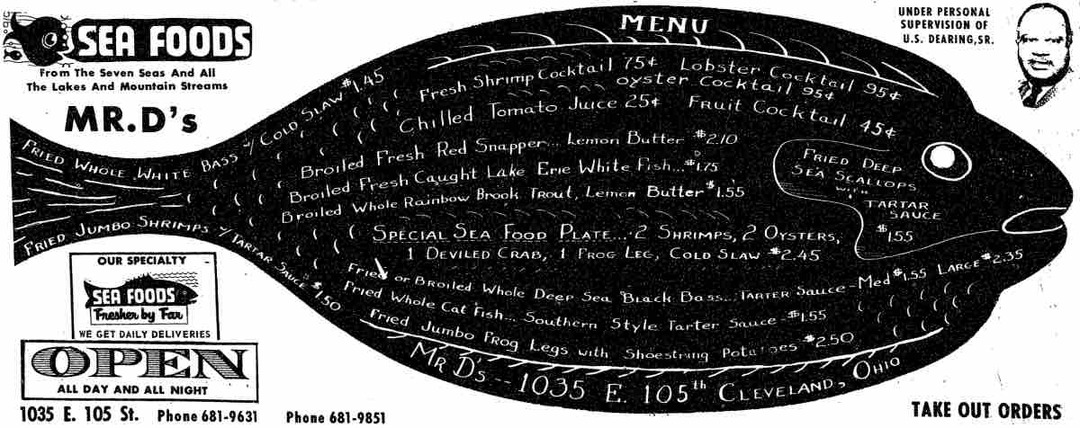 SEA FOODS
From The Seven Seas And All
The Lakes And Mountain Streams
MR.D's
UNDER PERSONAL
SUPERVISION OF
U.S. DEARING,SR.
MENU
Fresh Shrimp Cocktail 75¢ Lobster Cocktail 95¢
oyster Cocktail 95¢
Chilled Tomato Juice 25¢ Fruit Cocktail 45¢
FRIED WHOLE WHITE BASS w/ COLD SLAW $1.45
Broiled Fresh Red Snapper... Lemon Butter $2.10
Broiled Fresh Caught Lake Erie White Fish...$1.75
Broiled Whole Rainbow Brook Trout, Lemon Butter $1.55
FRIED DEEP
SEA SCALLOPS
WITH
TARTAR
SAUCE
$1.55
FRIED JUMBO SHRIMPS w/ TARTAR SAUCE $1.50
SPECIAL SEA FOOD PLATE...2 SHRIMPS, 2 OYSTERS,
1 DEVILED CRAB, 1 FROG LEG, COLD SLAW $2.45
Fried or Broiled Whole Deep Sea Black Bass...Tarter Sauce-Med $1.55 Large $2.35
Fried Whole Cat Fish... Southern Style Tarter Sauce $1.55
Fried Jumbo Frog Legs with Shoestring Potatoes $2.50
MR D's -- 1035 E. 105th CLEVELAND, OHIO
OUR SPECIALTY
SEA FOODS
Fresher by Far
WE GET DAILY DELIVERIES
OPEN
ALL DAY AND ALL NIGHT
1035 E. 105 St. Phone 681-9631 Phone 681-9851
TAKE OUT ORDERS